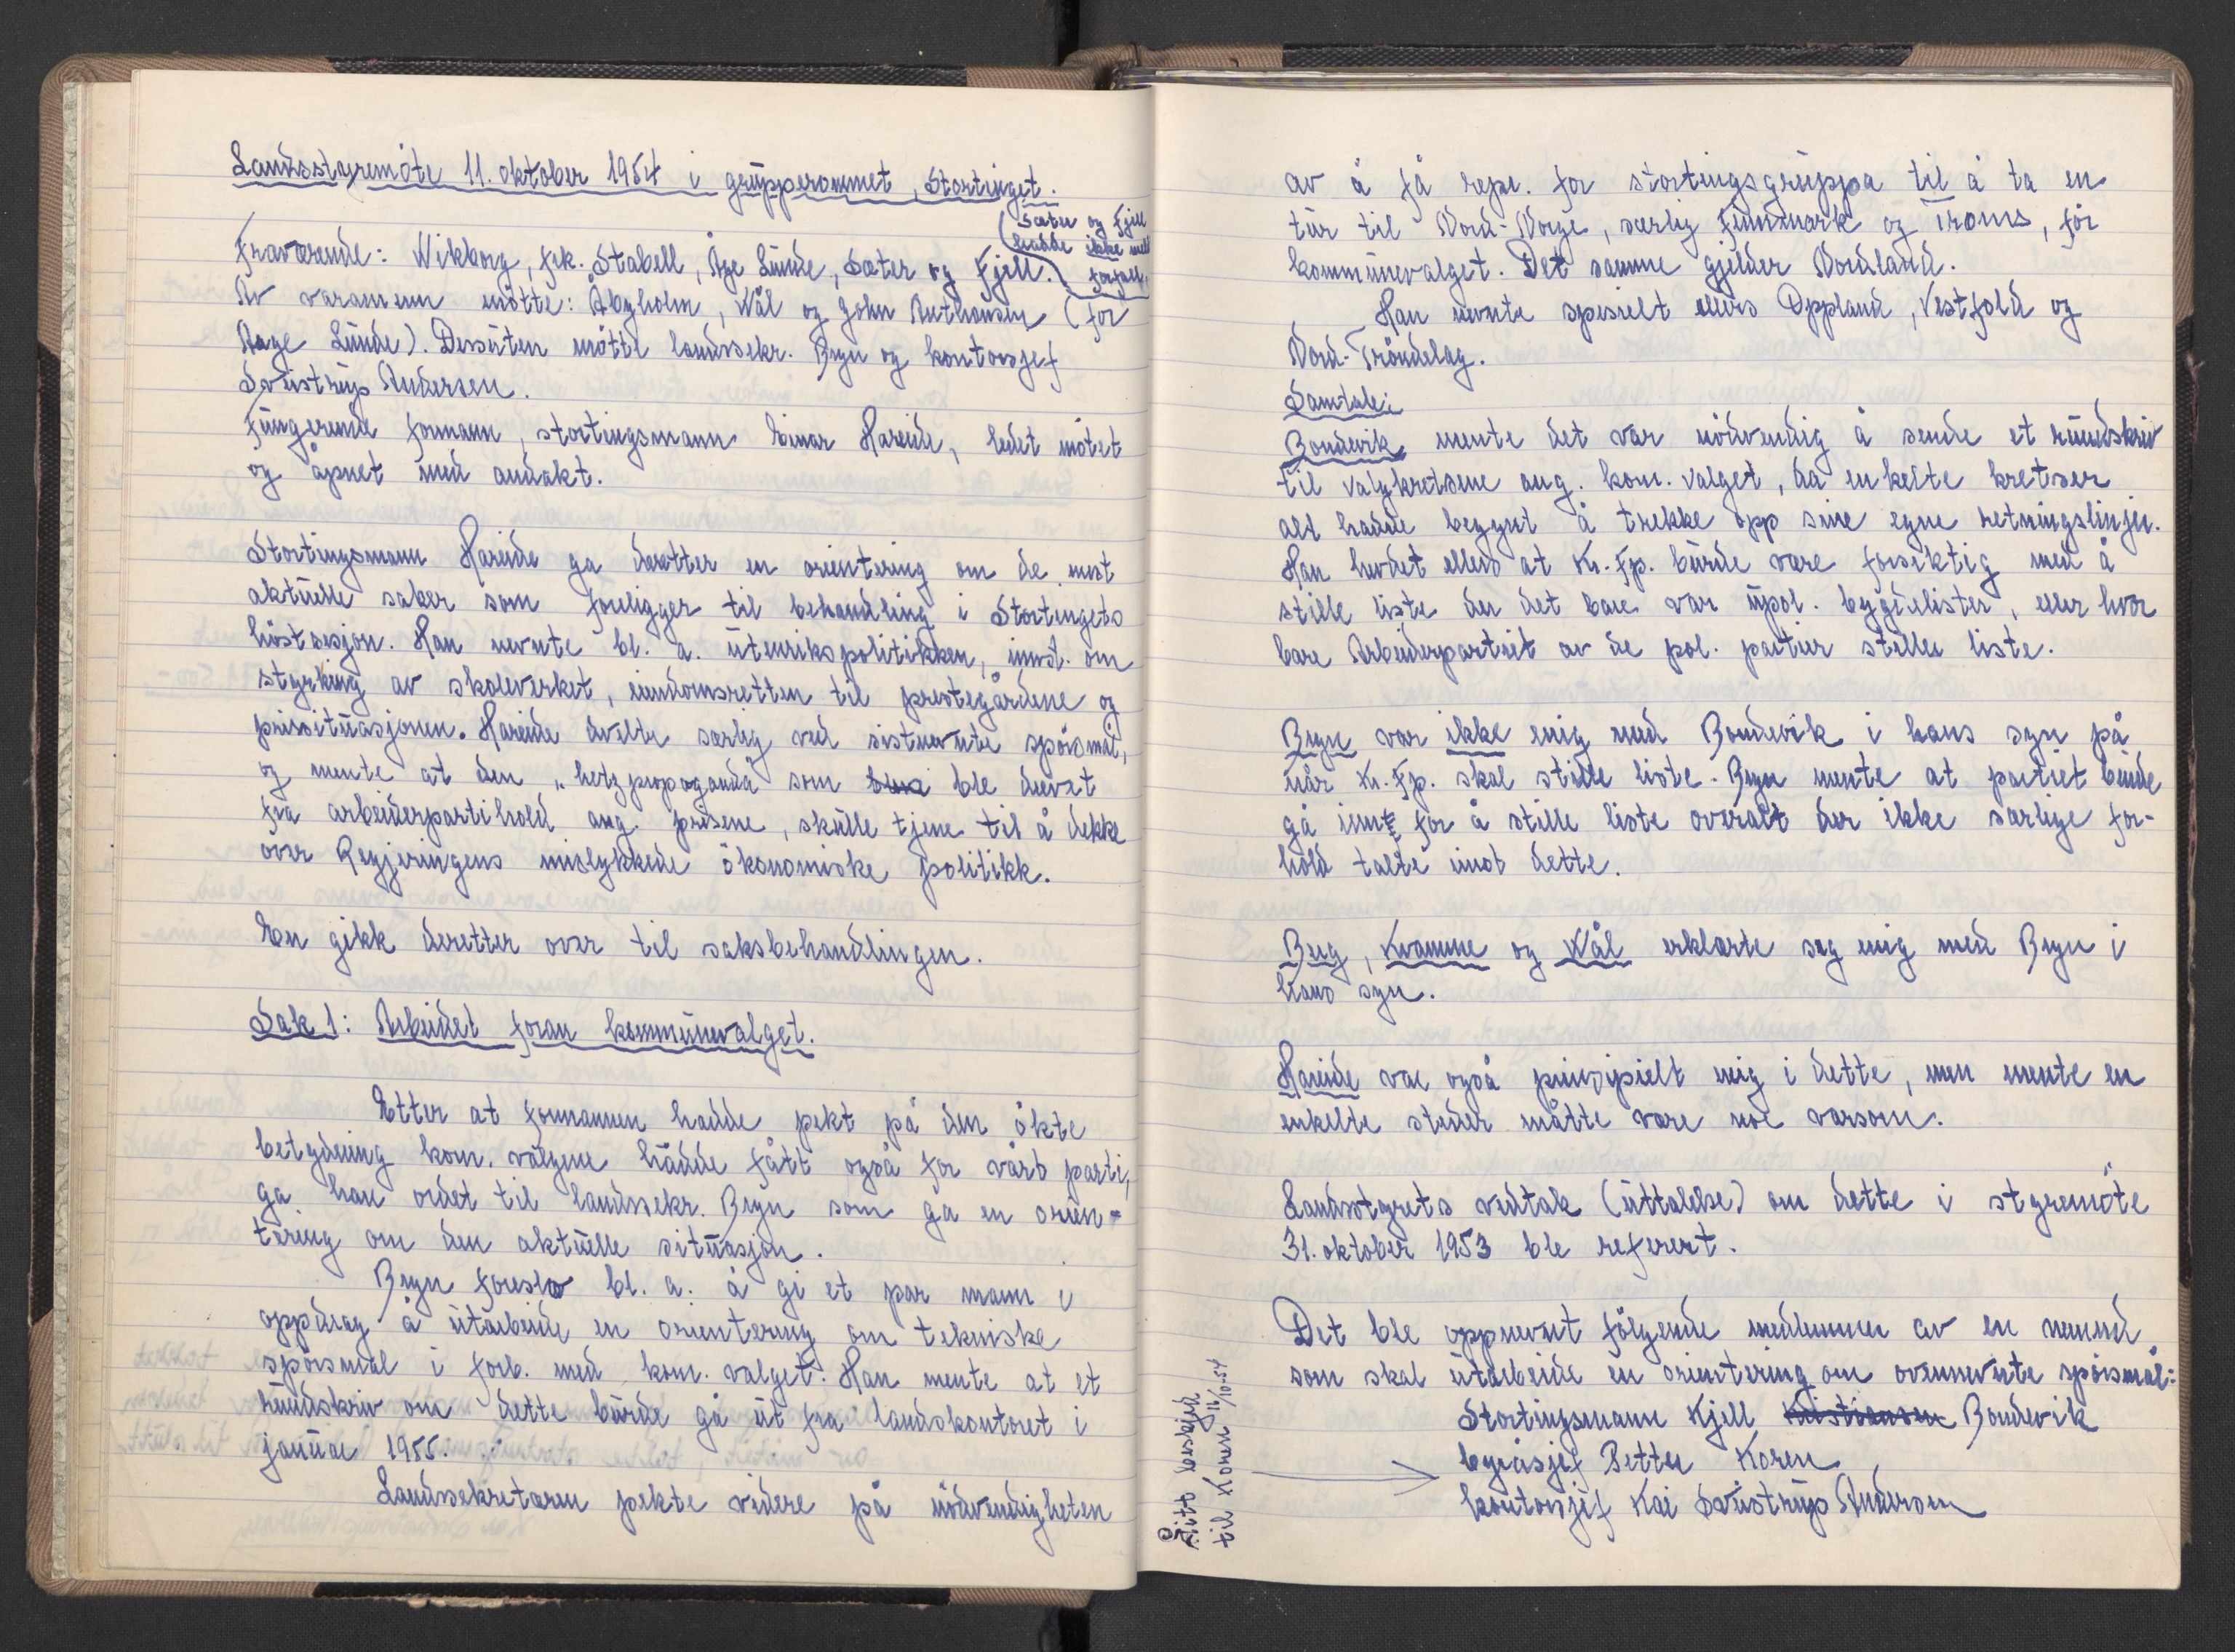 Landsstyremöte 11. oktober 1954 i grupperommet, Stortinget.
(Sæter og Fjell
hadde ikke meldt
forfall.)
Fraværende: Wikborg, frk. Stabell, Åge Lunde, Sæter og Fjell.
Av varamenn møtte: Åbyholm, Wål og John Anthonsen (for
Aage Lunde). Dessuten møtte landssekr. Bryn og kontorsjef
Svüstrup Andersen.
Fungerende formann, stortingsmann Einar Hareide, ledet møtet
og åpnet med andakt.
Stortingsmann Hareide ga deretter en orientering om de mest
aktuelle saker som foreligger til behandling i Stortingets
höstsesjon. Han nevnte bl. a. utenrikspolitikken, innst. om
styrking av skoleverket, eiendomsretten til prestegårdene og
prissituasjonen. Hareide dvelte særlig ved sistnevnte spörsmål,
og mente at den "hetzpropoganda" som ble drevet
fra arbeiderpartihold ang. prisene, skulle tjene til å dekke
over Regjeringens mislykkede ökonomiske politikk.
En gikk deretter over til saksbehandlingen.
Sak 1: Arbeidet foran kommunevalget.
Etter at formannen hadde pekt på den ökte
betydning kom. valgene hadde fått også for vårt parti,
ga han ordet til landssekr. Bryn som ga en orien-
tering om den aktuelle situasjon.
Bryn foreslo bl. a. å gi et par mann i
oppdrag å utarbeide en orientering om tekniske
spörsmål i forb. med kom. valget. Han mente at et
rundskriv om dette burde gå ut fra landskontoret i
januar 1955.
Landssekretæren pekte videre på nödvendigheten
av å få repr. for stortingsgruppa til å ta en
tur til Nord-Norge, særlig Finnmark og Troms, för
kommunevalget. Det samme gjelder Nordland.
Han nevnte spesielt ellers Oppland, Vestfold og
Nord-Tröndelag.
Samtale:
Bondevik mente det var nödvendig å sende et rundskriv
til valgkretsene ang. kom. valget, da enkelte kretser
alt hadde begynt å trekke opp sine egne retningslinjer.
Han hevdet ellers at Kr. Fp. burde være forsiktig med å
stille liste der det bare var upol. bygdelister, eller hvor
bare Arbeiderpartiet av de pol. partier stiller liste.
Bryn var ikke enig med Bondevik i hans syn på
når Kr. Fp. skal stille liste. Bryn mente at partiet burde
gå inn for å stille liste overalt der ikke særlige for-
hold talte imot dette.
Berg, Kvamme og Wål erklærte seg enig med Bryn i
hans syn.
Hareide var også prinsipielt enig i dette, men mente en
enkelte steder måtte være noe varsom.
Landsstyrets vedtak (uttalelse) om dette i styremöte
31. oktober 1953 ble referert.
Det ble oppnevnt fölgende medlemmer av en nemnd
som skal utarbeide en orientering om ovennevnte spörsmål:
Stortingsmann Kjell Kristiansen Bondevik
byråsjef Petter Koren
kontorsjef Kai Svüstrup Andersen
beskjed
til Koren 16/10-54